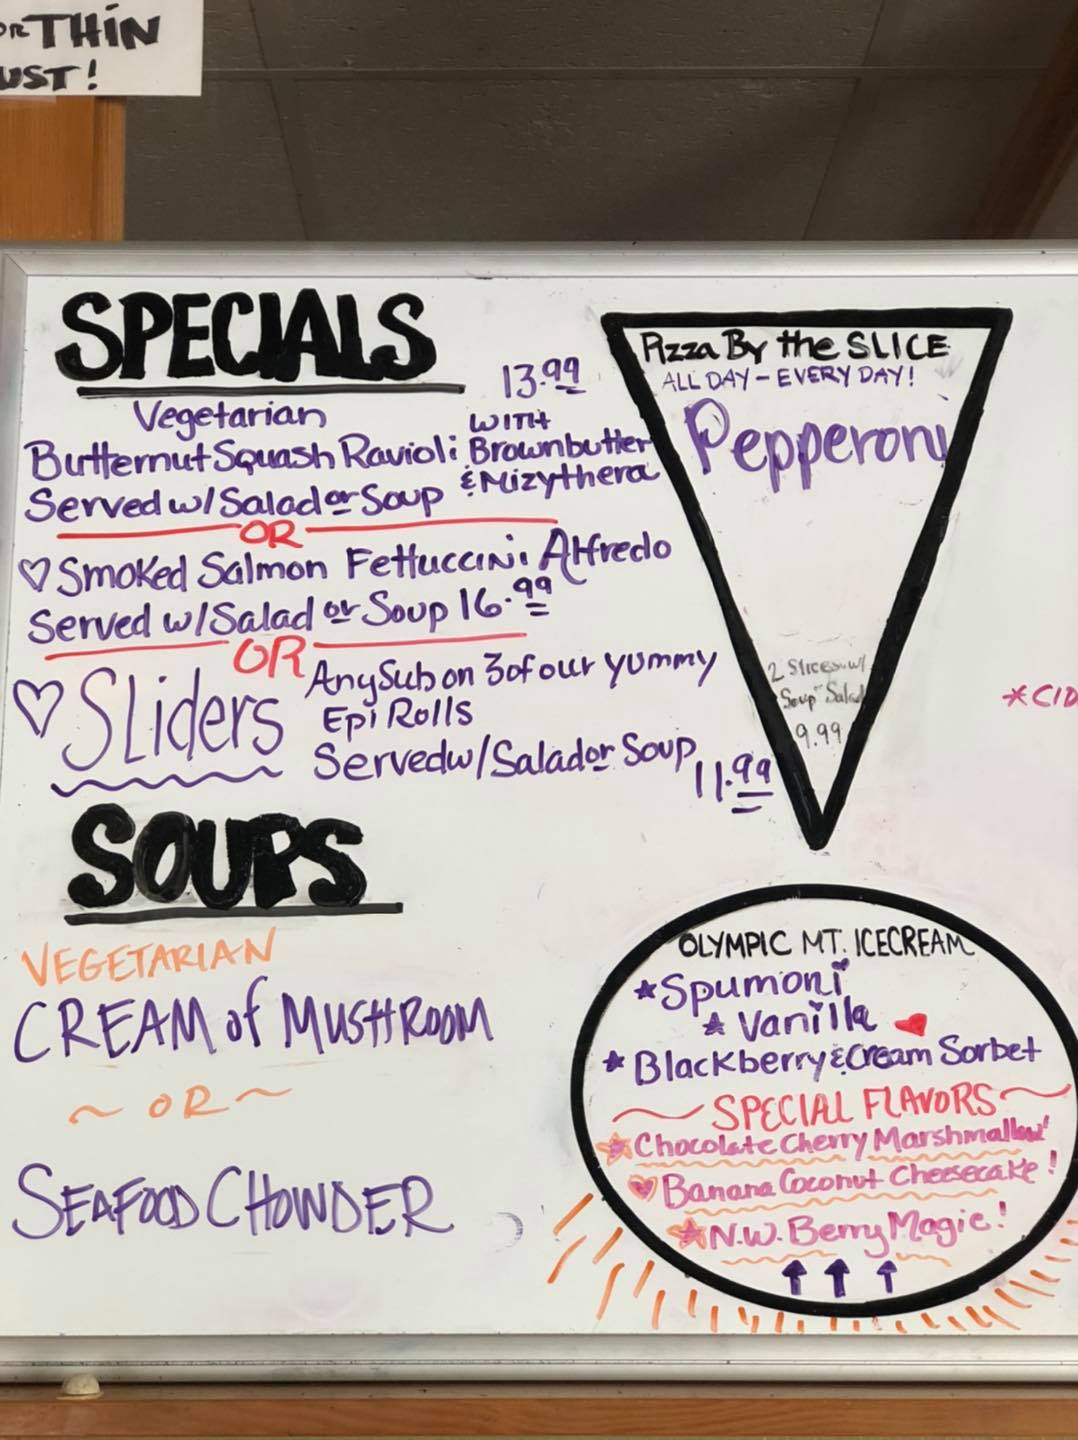 OR THIN
UST!
SPECIALS
13.99
Vegetarian
Butternut Squash Ravioli WITH Brownbutter
& Mizythera
Served w/Salad or Soup
OR
♡ Smoked Salmon Fettuccini Alfredo
Served w/Salad or Soup 16.99
OR
♡ SLiders Any Sub on 3 of our yummy
Epi Rolls
Served w/Salad or Soup 11.99
SOUPS
VEGETARIAN
CREAM of MUSHROOM
~ OR ~
SEAFOOD CHOWDER
Pizza By the SLICE
ALL DAY - EVERY DAY!
Pepperoni
2 Slices w/
Soup or Salad
9.99
*CID
OLYMPIC MT. ICECREAM
★ Spumoni
★ Vanilla
★ Blackberry & Cream Sorbet
SPECIAL FLAVORS
Chocolate Cherry Marshmallow!
Banana Coconut Cheesecake!
N.W. Berry Magic!